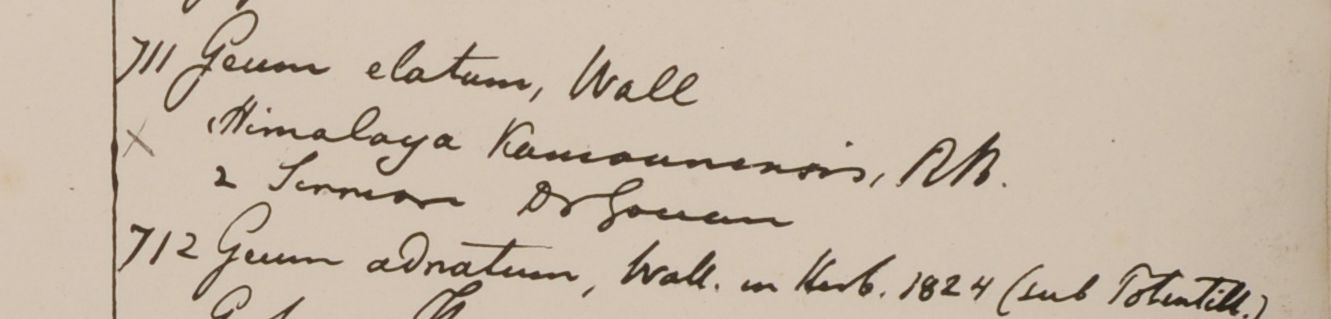 711 Geum elatum, Wall
Himalaya Kamaonensis, RB.
2 Sirmore Dr Govan
712 Geum adnatum, Wall. in Herb. 1824 (sub Potentill.)